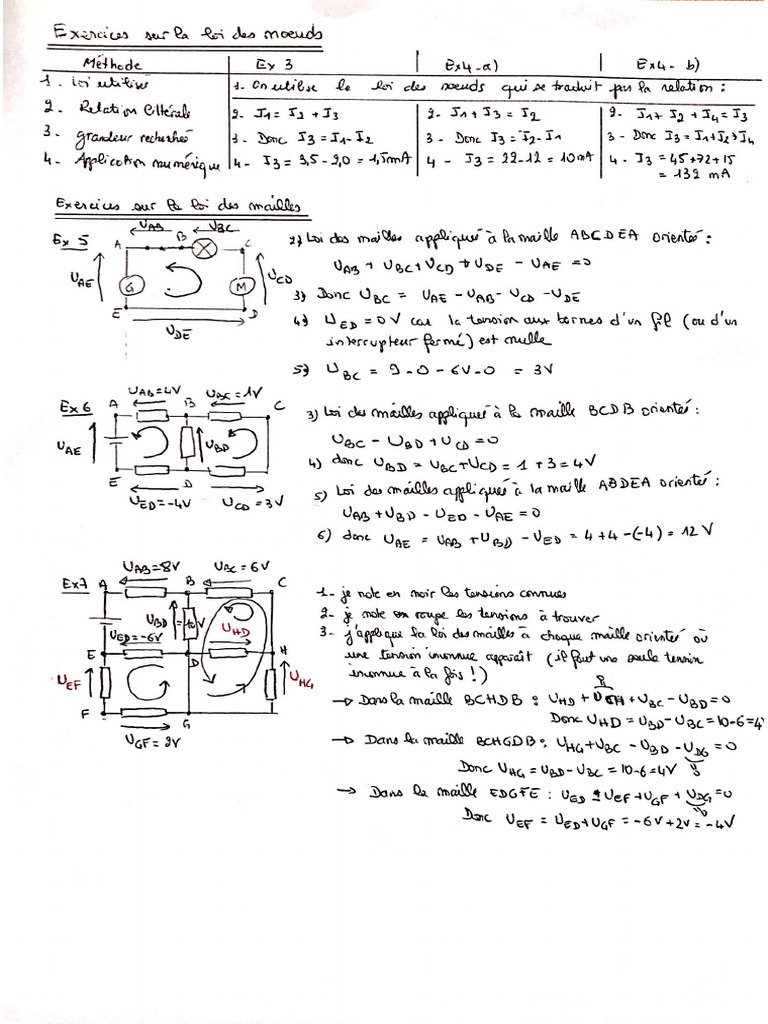 Exercices sur la loi des noeuds
Méthode | Ex 3 | Ex4-a) | Ex4- b)
1. Loi utilisée | 1. On utilise la loi des noeuds qui se traduit par la relation :
2. Relation littérale | 2- I1 = I2 + I3 | 2- I1 + I3 = I2 | 2- I1 + I2 + I4 = I3
3. grandeur recherchée | 3- Donc I3 = I1-I2 | 3- Donc I3 = I2-I1 | 3- Donc I3 = I1+I2+I4
4- Application numérique | 4- I3 = 3,5 - 2,0 = 1,5mA | 4 - I3 = 22-12 = 10mA | 4. I3 = 45+72+15
= 132 mA
Exercices sur la loi des mailles
Ex 5
UAB UBC
A B C
UAE G M UCD
E D
UDE
2) Loi des mailles appliquée à la maille ABCDEA orientée :
UAB + UBC + UCD + UDE - UAE = 0
3) Donc UBC = UAE - UAB - UCD - UDE
4) UED = 0V car la tension aux bornes d'un fil (ou d'un
interrupteur fermé) est nulle
5) UBC = 9 - 0 - 6V - 0 = 3V
Ex 6
UAB=4V UBC=1V
A B C
UAE UBD
E D
UED=-4V UCD=3V
3) Loi des mailles appliquée à la maille BCDB orientée :
UBC - UBD + UCD = 0
4) donc UBD = UBC + UCD = 1 + 3 = 4V
5) Loi des mailles appliquée à la maille ABDEA orientée :
UAB + UBD - UED - UAE = 0
6) donc UAE = UAB + UBD - UED = 4 + 4 - (-4) = 12 V
Ex7
UAB=8V UBC=6V
A B C
UBD=10V
UED=-6V UHD
E D H
UEF UHG
F G
UGF=2V
1- je note en noir les tensions connues
2- je note en rouge les tensions à trouver
3- j'applique la loi des mailles à chaque maille orientée où
une tension inconnue apparaît (il faut une seule tension
inconnue à la fois !)
→ Dans la maille BCHDB : UHD + UCH + UBC - UBD = 0
Donc UHD = UBD - UBC = 10-6=4V
→ Dans la maille BCHGDB : UHG + UBC - UBD - UDG = 0
Donc UHG = UBD - UBC = 10-6=4V
→ Dans la maille EDGFE : UED UEF + UGF + UDG = 0
Donc UEF = UED + UGF = -6V + 2V = -4V